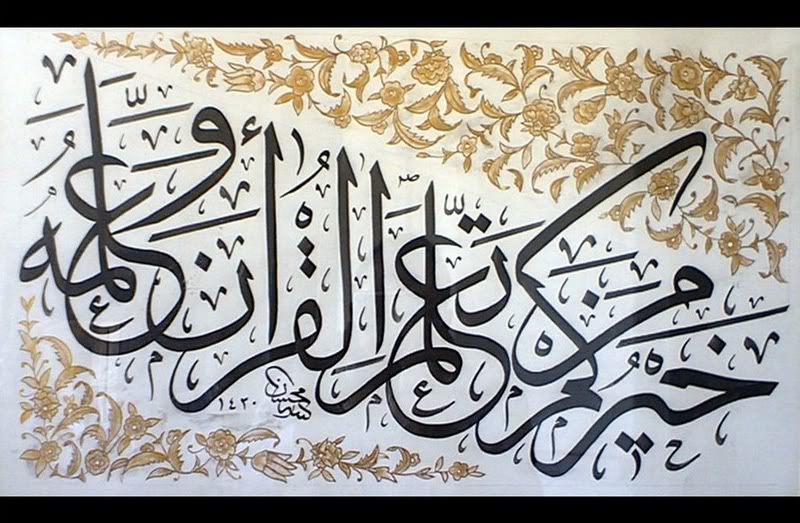 خيركم من تعلم القرآن وعلمه
١٤٢٠